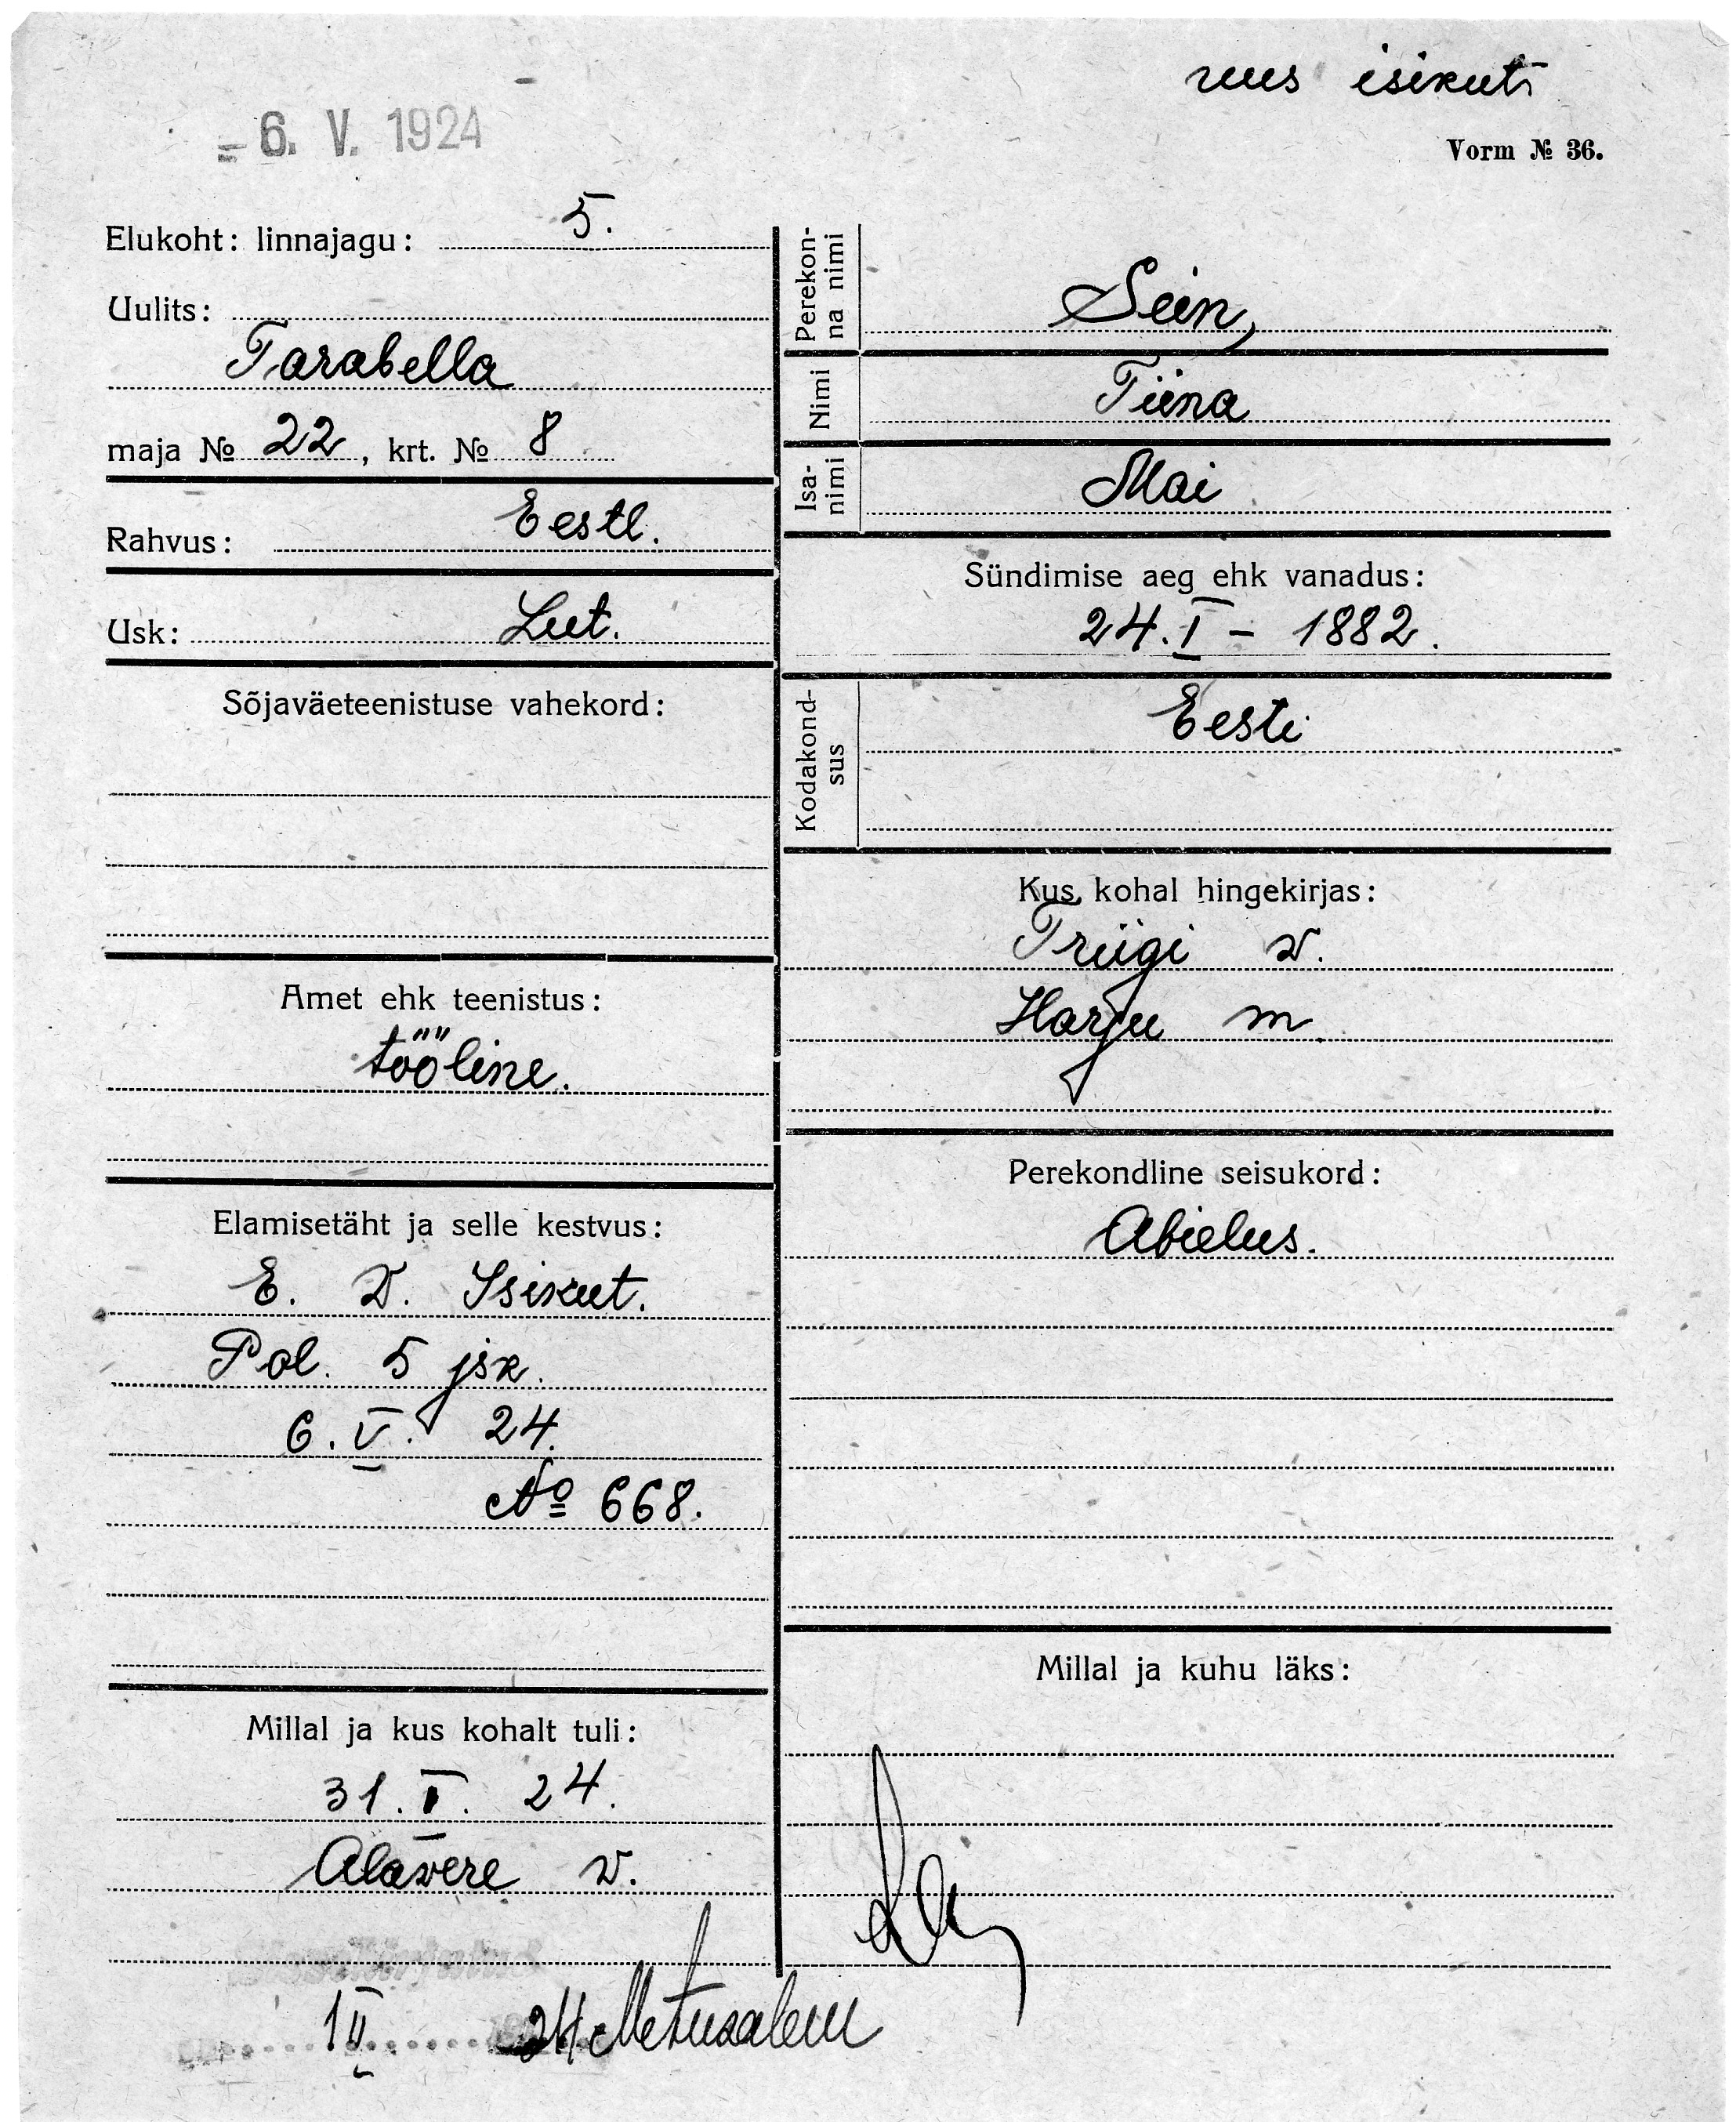 uus isikut
= 6. V. 1924
Vorm № 36.
Elukoht: linnajagu: 5.
Uulits:
Tarabella
maja № 22, krt. № 8
Rahvus: Eestl.
Usk: Lut.
Sõjaväeteenistuse vahekord:
Amet ehk teenistus:
tööline.
Elamisetäht ja selle kestvus:
E. V. Isikut.
Pol. 5 jsk.
6. V. 24.
№ 668.
Millal ja kus kohalt tuli:
31. I. 24.
Alavere v.
1 II 24 Metusalem
Perekon-
na nimi
Sein,
Nimi Tiina
Isa-
nimi
Mai
Sündimise aeg ehk vanadus:
24. I - 1882.
Kodakond-
sus
Eesti
Kus kohal hingekirjas:
Triigi v.
Harju m.
Perekondline seisukord:
Abielus.
Millal ja kuhu läks: